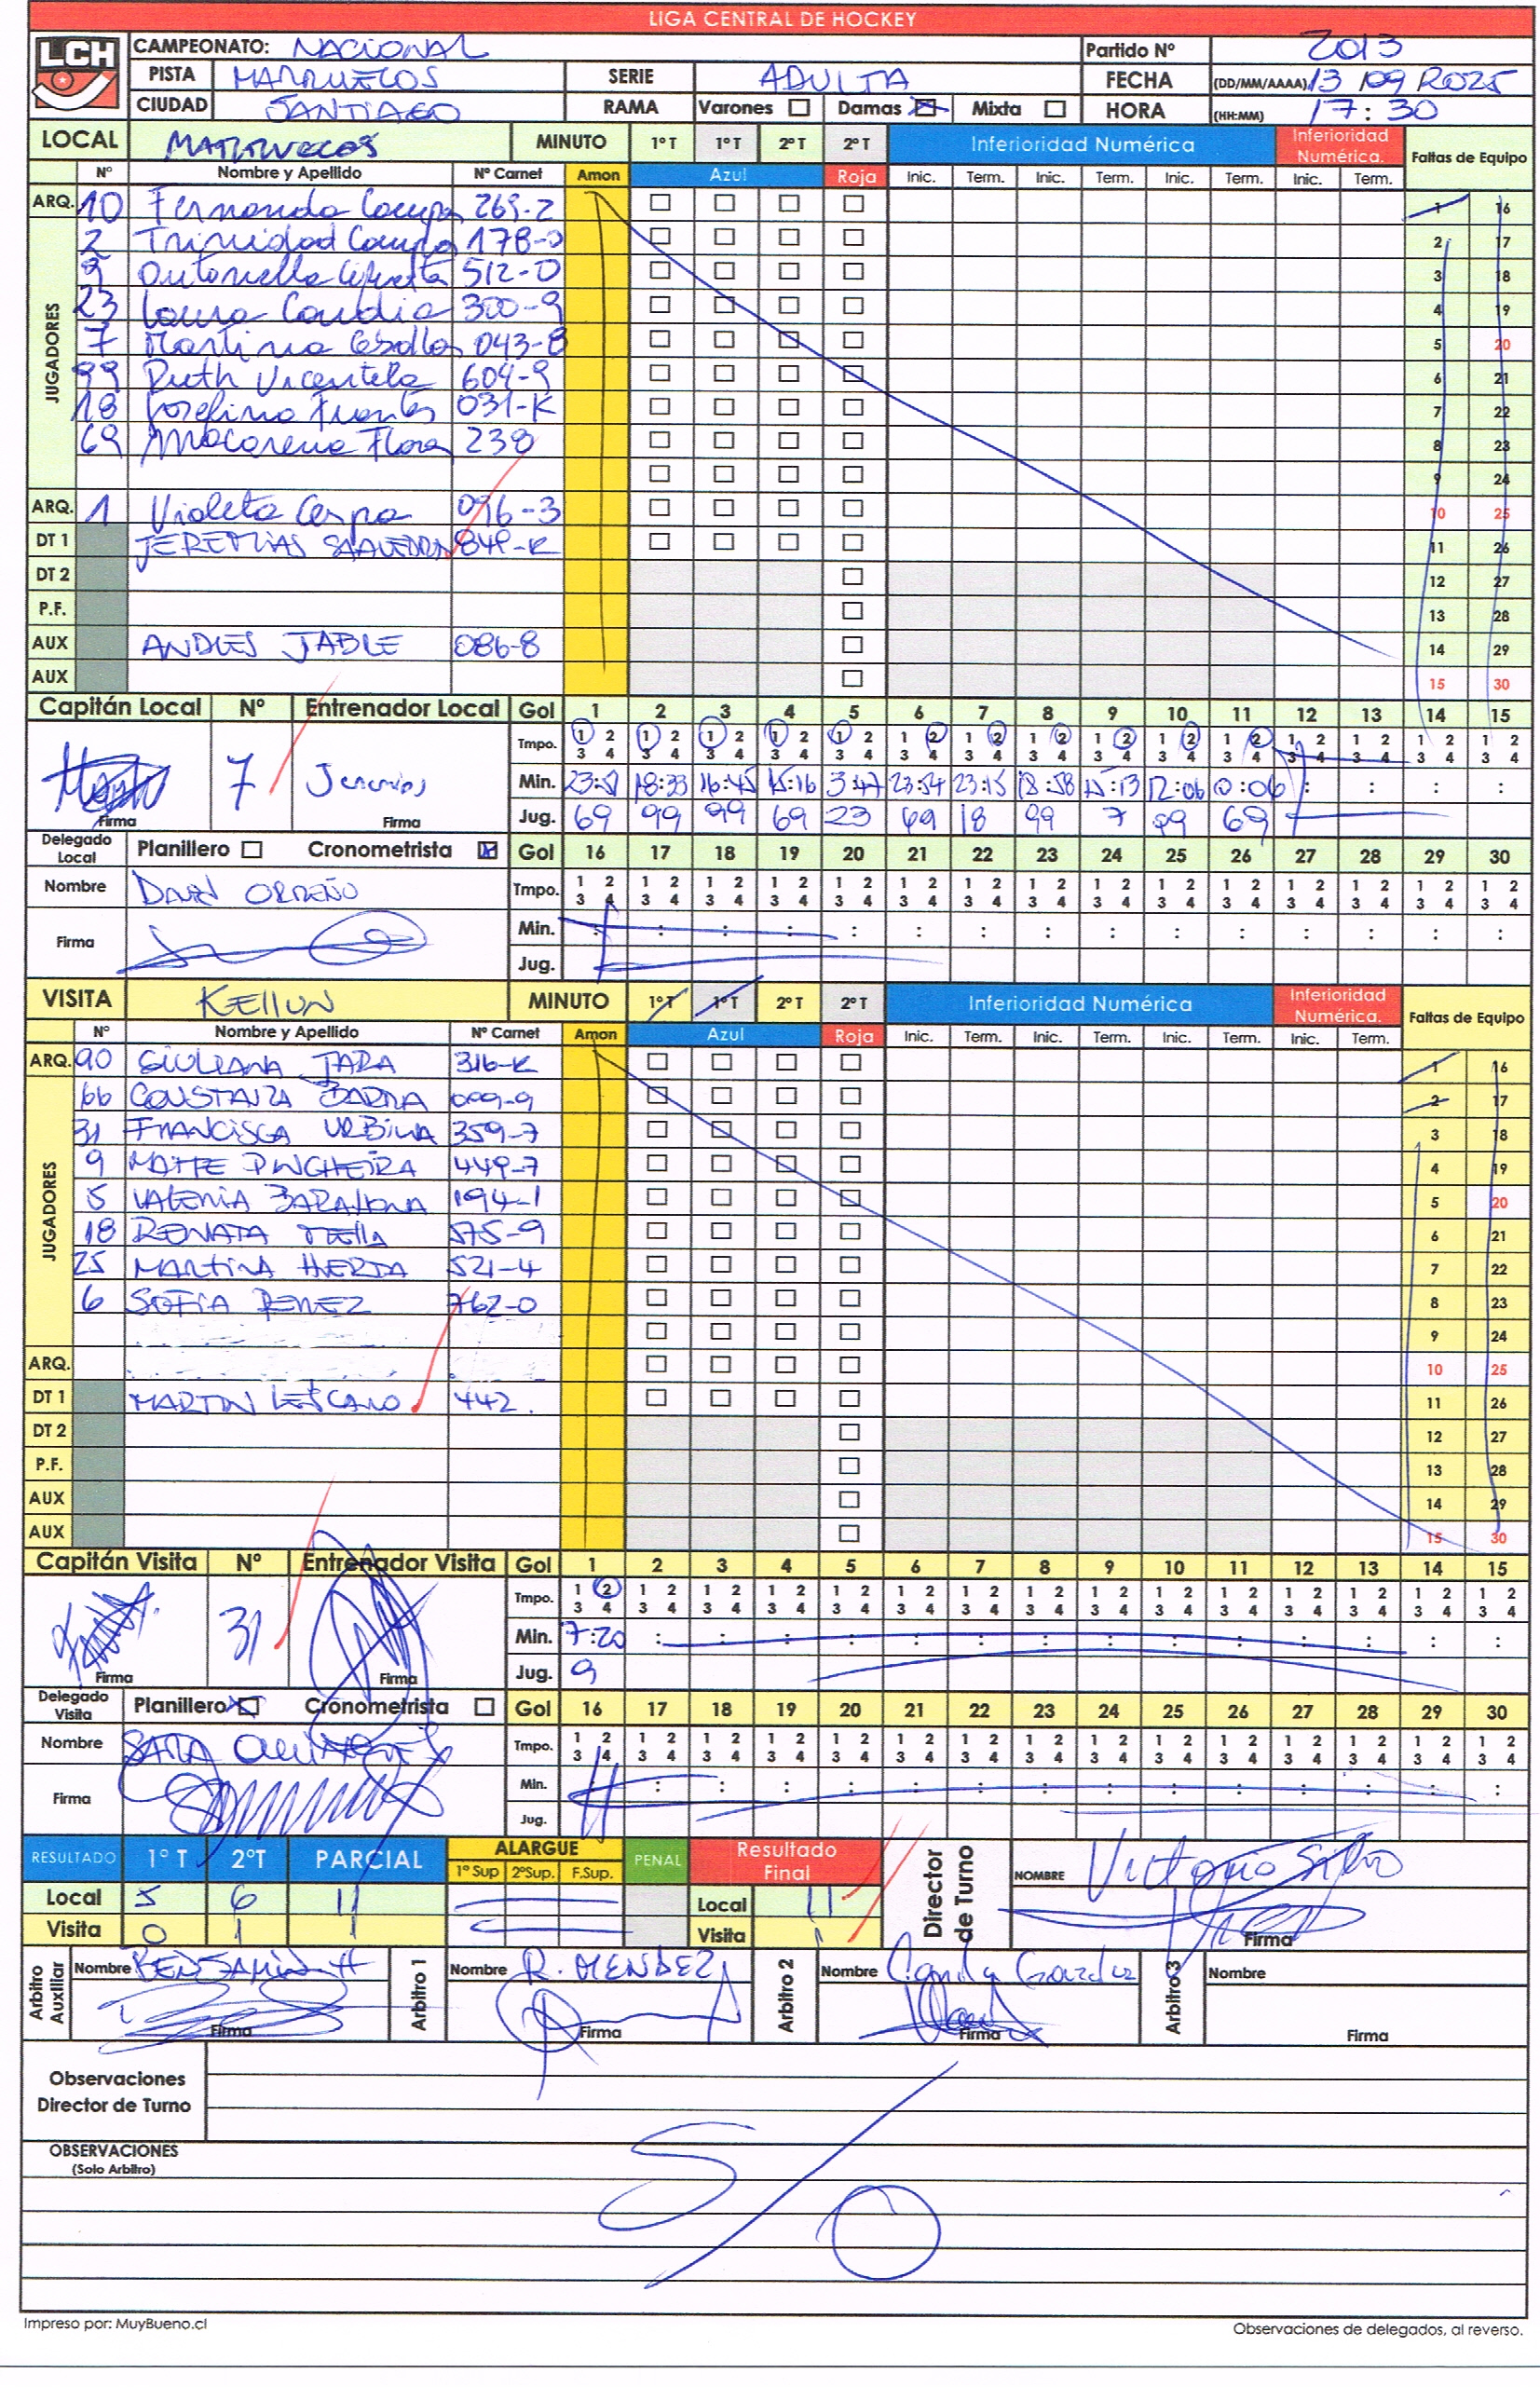 LIGA CENTRAL DE HOCKEY
LCH
CAMPEONATO: NACIONAL Partido Nº 2013
PISTA MARRUECOS SERIE ADULTA FECHA (DD/MM/AAAA) 13/09 2025
CIUDAD SANTIAGO RAMA Varones Damas Mixta HORA (HH:MM) 17:30
LOCAL MARRUECOS MINUTO 1ºT 1ºT 2ºT 2ºT Inferioridad Numérica Inferioridad Numérica. Faltas de Equipo
Nº Nombre y Apellido Nº Carnet Amon Azul Roja Inic. Term. Inic. Term. Inic. Term. Inic. Term.
ARQ. 10 Fernanda 269-2 1 16
JUGADORES
2 Trinidad 178-0 2 17
9 Antonella 512-0 3 18
23 Laura Candia 300-9 4 19
7 Martina 043-8 5 20
99 Ruth Vicentela 604-9 6 21
18 Josefina Fuentes 031-K 7 22
69 Macarena Flores 238 8 23
9 24
ARQ. 1 Violeta 096-3 10 25
DT 1 JEREMIAS SAAVEDRA 849-K 11 26
DT 2 12 27
P.F. 13 28
AUX ANDRES JABLE 086-8 14 29
AUX 15 30
Capitán Local Nº Entrenador Local Gol 1 2 3 4 5 6 7 8 9 10 11 12 13 14 15
Tmpo. 1 2 1 2 1 2 1 2 1 2 1 2 1 2 1 2 1 2 1 2 1 2 1 2 1 2 1 2 1 2
3 4 3 4 3 4 3 4 3 4 3 4 3 4 3 4 3 4 3 4 3 4 3 4 3 4 3 4 3 4
7 Jeremías Min. 23:51 18:33 16:45 15:16 3:47 23:54 23:15 18:58 15:13 12:06 0:06 : : : :
Firma Firma Jug. 69 99 99 69 23 69 18 99 7 99 69
Delegado Local Planillero Cronometrista Gol 16 17 18 19 20 21 22 23 24 25 26 27 28 29 30
Nombre Tmpo. 1 2 1 2 1 2 1 2 1 2 1 2 1 2 1 2 1 2 1 2 1 2 1 2 1 2 1 2 1 2
3 4 3 4 3 4 3 4 3 4 3 4 3 4 3 4 3 4 3 4 3 4 3 4 3 4 3 4 3 4
Firma Min. : : : : : : : : : : : : : : :
Jug.
VISITA KELLUN MINUTO 1ºT 1ºT 2ºT 2ºT Inferioridad Numérica Inferioridad Numérica. Faltas de Equipo
Nº Nombre y Apellido Nº Carnet Amon Azul Roja Inic. Term. Inic. Term. Inic. Term. Inic. Term.
ARQ. 90 GIULIANA JARA 316-K 1 16
JUGADORES
66 CONSTANZA 099-9 2 17
31 FRANCISCA URBINA 359-7 3 18
9 MAITE PINCHEIRA 449-7 4 19
5 VALENIA BARAHONA 194-1 5 20
18 RENATA 575-9 6 21
25 MARTINA 521-4 7 22
6 SOFIA PEREZ 762-0 8 23
9 24
ARQ. 10 25
DT 1 MARTIN LESCANO 442. 11 26
DT 2 12 27
P.F. 13 28
AUX 14 29
AUX 15 30
Capitán Visita Nº Entrenador Visita Gol 1 2 3 4 5 6 7 8 9 10 11 12 13 14 15
Tmpo. 1 2 1 2 1 2 1 2 1 2 1 2 1 2 1 2 1 2 1 2 1 2 1 2 1 2 1 2 1 2
3 4 3 4 3 4 3 4 3 4 3 4 3 4 3 4 3 4 3 4 3 4 3 4 3 4 3 4 3 4
31 Min. 7:20 : : : : : : : : : : : : : :
Firma Firma Jug. 9
Delegado Visita Planillero Cronometrista Gol 16 17 18 19 20 21 22 23 24 25 26 27 28 29 30
Nombre SARA Tmpo. 1 2 1 2 1 2 1 2 1 2 1 2 1 2 1 2 1 2 1 2 1 2 1 2 1 2 1 2 1 2
3 4 3 4 3 4 3 4 3 4 3 4 3 4 3 4 3 4 3 4 3 4 3 4 3 4 3 4 3 4
Firma Min. : : : : : : : : : : : : : : :
Jug.
RESULTADO 1º T 2ºT PARCIAL ALARGUE 1º Sup 2ºSup. F.Sup. PENAL Resultado Final Director de Turno NOMBRE Victoria Silva
Local 5 6 11 Local 11
Visita 0 1 1 Visita 1 Firma
Arbitro Auxiliar Nombre BENJAMIN H Arbitro 1 Nombre R. MENDEZ Arbitro 2 Nombre Camila González Arbitro 3 Nombre
Firma Firma Firma Firma
Observaciones
Director de Turno
OBSERVACIONES
(Solo Arbitro)
S/O
Impreso por: MuyBueno.cl Observaciones de delegados, al reverso.